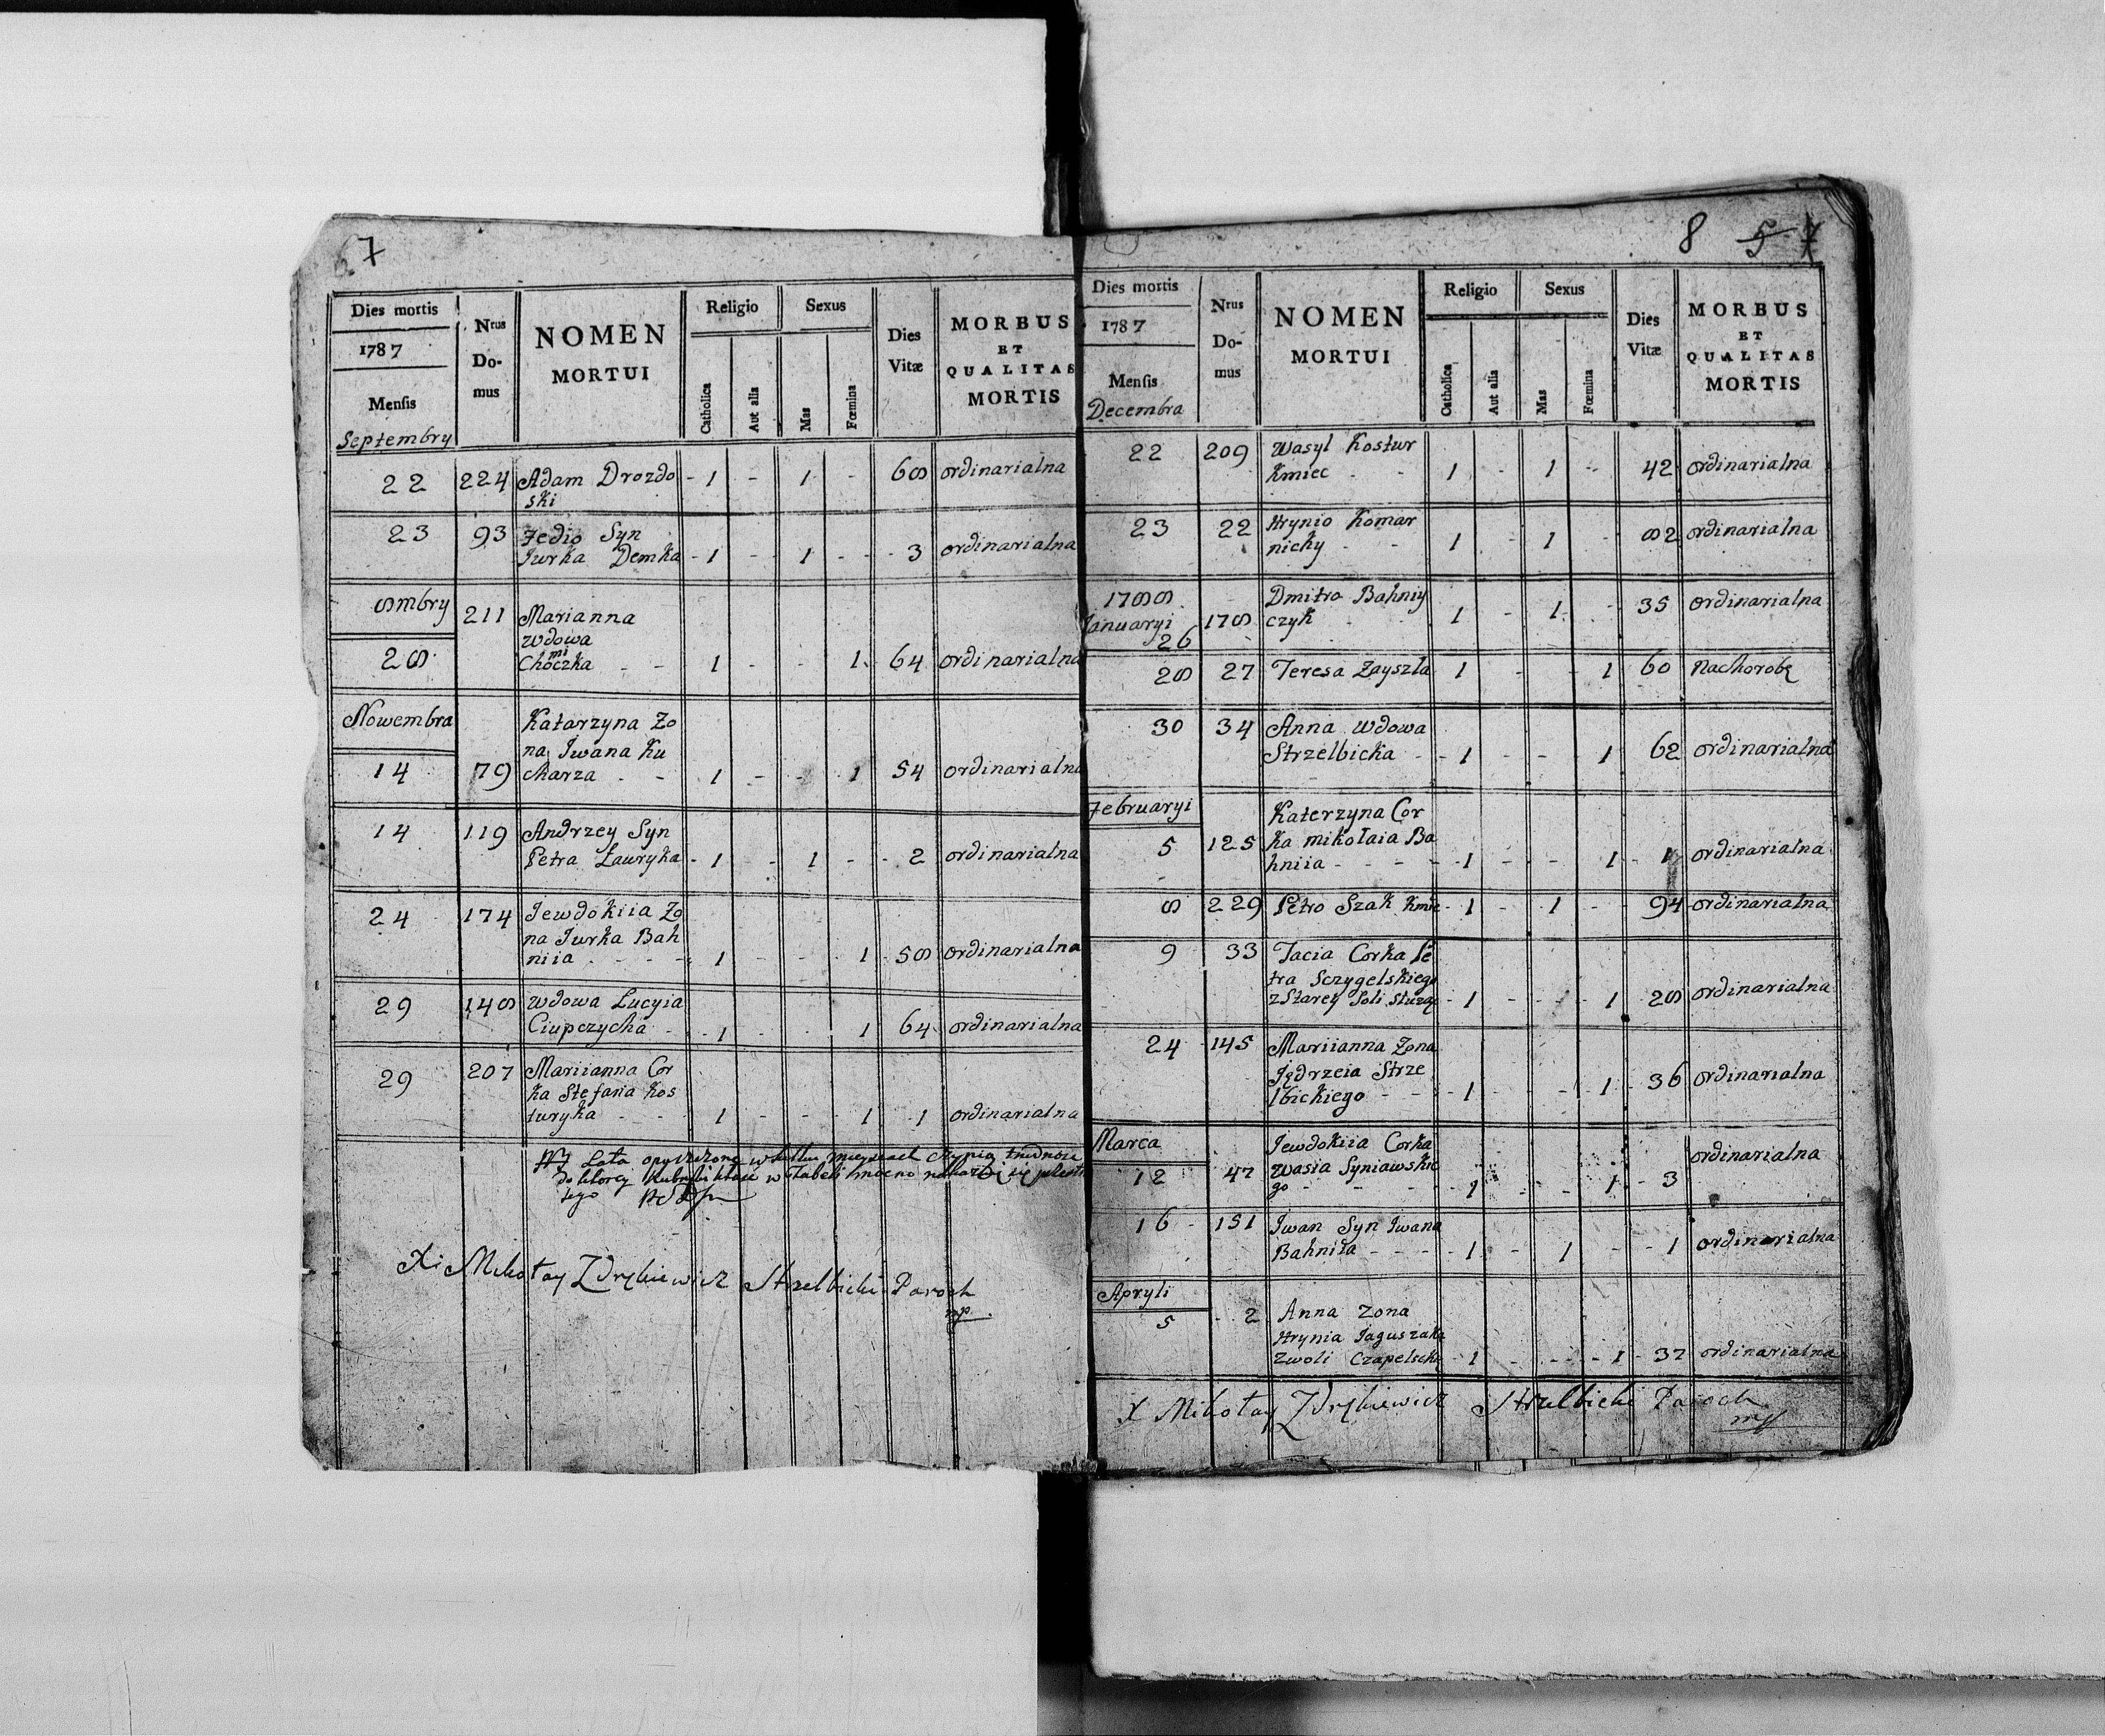 7
Dies mortis
1787
Mensis
Septembry
Nrus Do- mus
NOMEN MORTUI
Religio
Catholica
Aut alia
Sexus
Mas
Fœmina
Dies Vitæ
MORBUS ET QUALITAS MORTIS
22 224 Adam Drozdo - 1 - 1 - 68 ordinarialna
ski
23 93 Fedio Syn
Iurka Demka - 1 - 1 - - 3 ordinarialna
8mbry 211 Marianna
wdowa
mi
28 Choczka - - 1 - - 1 64 ordinarialna
Nowembra Katarzyna Zo
na Iwana Ku
14 79 charza - - 1 - - 1 54 ordinarialna
14 119 Andrzey Syn
Petra Ławryka - 1 - 1 - - 2 ordinarialna
24 174 Iewdokiia Zo
na Iurka Bah
niia - - - 1 - - 1 58 ordinarialna
29 148 wdowa Lucyia
Ciupczycha - - 1 - - 1 64 ordinarialna
29 207 Mariianna Cor
ka Stefana Kos
turyka - - 1 - - 1 1 ordinarialna
Lata opuszczone w kilku mieyscach czynią trudność
do ktorey w Tabeli
tego
X Mikołay Zdrękiewicz Strzelbicki Paroch
mp
8 5 7
Dies mortis
1787
Mensis
Decembra
Nrus Do- mus
NOMEN MORTUI
Religio
Catholica
Aut alia
Sexus
Mas
Fœmina
Dies Vitæ
MORBUS ET QUALITAS MORTIS
22 209 Wasyl Kostur
Kmiec - - 1 - 1 - 42 ordinarialna
23 22 Hrynio Komar
nicky - - 1 - 1 - 82 ordinarialna
1788 Dmitro Bahniy
Januaryi 178 czyk - 1 - 1 - 35 ordinarialna
26
28 27 Teresa Zayszla 1 - - 1 60 nachorobę
30 34 Anna wdowa
Strzelbicka - - 1 - - 1 62 ordinarialna
Februaryi Katerzyna Cor
5 125 ka mikołaia Ba
hniia - - - - 1 - - 1 - 1 ordinarialna
8 229 Petro Szak Kmie - 1 - 1 - - 94 ordinarialna
9 33 Tacia Corka Pe
tra Sczygelskiego
zStarey Soli - 1 - - 1 - 28 ordinarialna
24 145 Mariianna Zona
Jędrzeia Strze
lbickiego - - - 1 - - 1 - 36 ordinarialna
Marca Iewdokiia Corka
12 47 wasia Syniawskie
go - - - - 1 - - 1 - 3 ordinarialna
16 151 Iwan Syn Iwana
Bahniia - - - - 1 - 1 - - 1 ordinarialna
Apryli
5 2 Anna zona
Hrynia Iaguszaka
zwoli Czapelsckiy - 1 - - - 1 - 37 ordinarialna
X Mikołay Zdrękiewicz Strzelbicki Paroch
mp